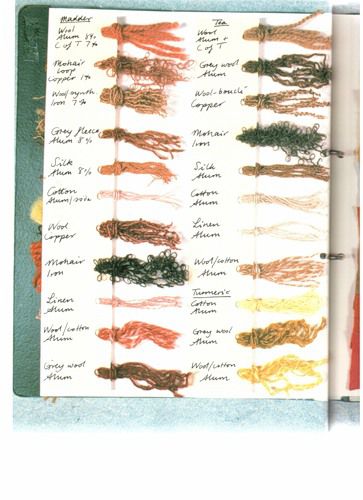 Madder
Wool
Alum 8%
C of T 7%
Mohair
Loop
Copper 1%
Wool/synth
Iron 7%
Grey fleece
Alum 8%
Silk
Alum 8%
Cotton
Alum
Wool
Copper
Mohair
Iron
Linen
Alum
Wool/cotton
Alum
Grey wool
Alum
Tea
Wool
Alum +
C of T
Grey wool
Alum
Wool-bouclé
Copper
Mohair
Iron
Silk
Alum
Cotton
Alum
Linen
Alum
Wool/cotton
Alum
Turmeric
Cotton
Alum
Grey wool
Alum
Wool/cotton
Alum